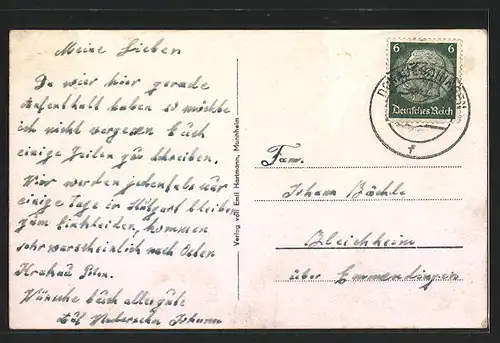 Meine Lieben
Da wier hier gerade
Aufenthalt haben so möchte
ich nicht vergessen Euch
einige Zeilen zu schreiben.
Wier werden jedenfals nur
einige Tage in Stutgart bleiben
zum Einkleiden, kommen
sehr warscheinlich nach Osten
Krakau Polen.
Wünsche Euch alles gute
Auf Wiedersehn Johann
Verlag von Emil Hartmann, Mannheim
6 6
Deutsches Reich
Fam.
Johann Bächle
Bleichheim
über Emmendingen